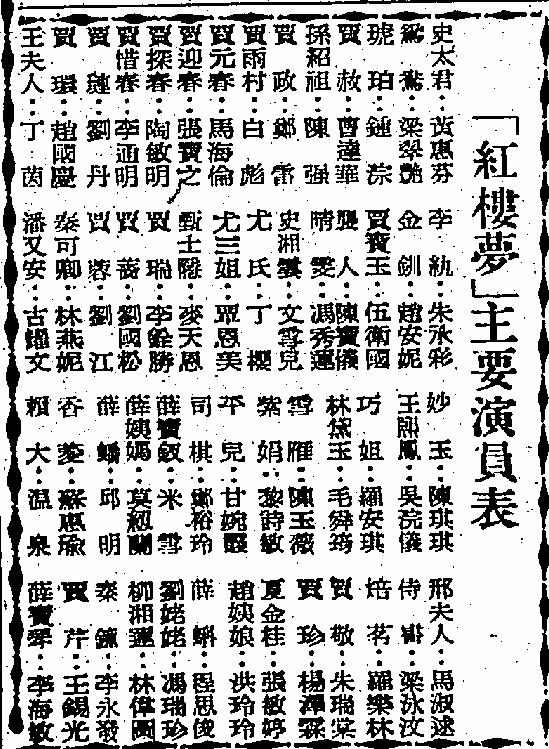 「紅樓夢」主要演員表
史太君…黃惠芬
鴛鴦…梁翠艷
琥珀…鍾淙
賈赦…曹達華
孫紹祖…陳強
賈政…鄭雷
賈雨村…白彪
賈元春…馬海倫
賈迎春…張寶之
賈探春…陶敏明
賈惜春…李通明
賈璉…劉丹
賈環…趙國慶
王夫人…丁茵
李紈…朱承彩
金釧…趙安妮
賈寶玉…伍衛國
襲人…陳寶儀
晴雯…馮秀蓮
史湘雲…文雪兒
尤氏…丁櫻
尤三姐…覃恩美
甄士隱…麥天恩
賈瑞…李銓勝
賈薔…劉國松
賈蓉…劉江
秦可卿…林燕妮
潘又安…古鍾文
妙玉…陳琪琪
王熙鳳…吳浣儀
巧姐…羅安琪
林黛玉…毛舜筠
雪雁…陳玉薇
紫娟…黎蒔敏
平兒…甘婉霞
司棋…鄭裕玲
薛寶釵…米雪
薛姨媽…莫韌蘭
薛蟠…邱明
香菱…蘇惠瑜
賴大…溫泉
邢夫人…馬淑逑
侍書…梁泳汶
焙茗…羅樂林
賈敬…朱瑞棠
賈珍…楊澤霖
夏金桂…張敏婷
趙姨娘…洪玲玲
薛蝌…程思俊
劉姥姥…馮瑞珍
柳湘蓮…林偉圖
秦鍾…李永發
賈芹…王錫光
薛寶琴…李海敏